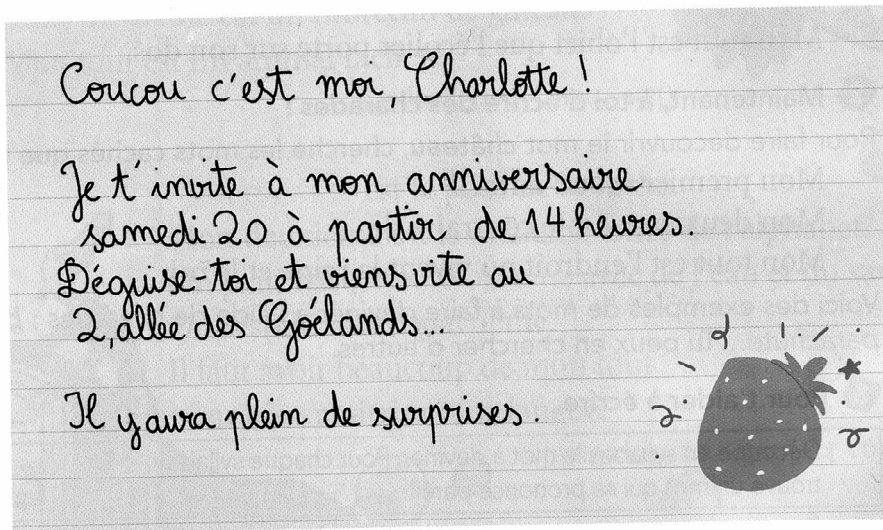 Coucou c'est moi Charlotte !
Je t'invite à mon anniversaire
samedi 20 à partir de 14 heures.
Déguise-toi et viens vite au
2, allée des Goélands...
Il y aura plein de surprises.